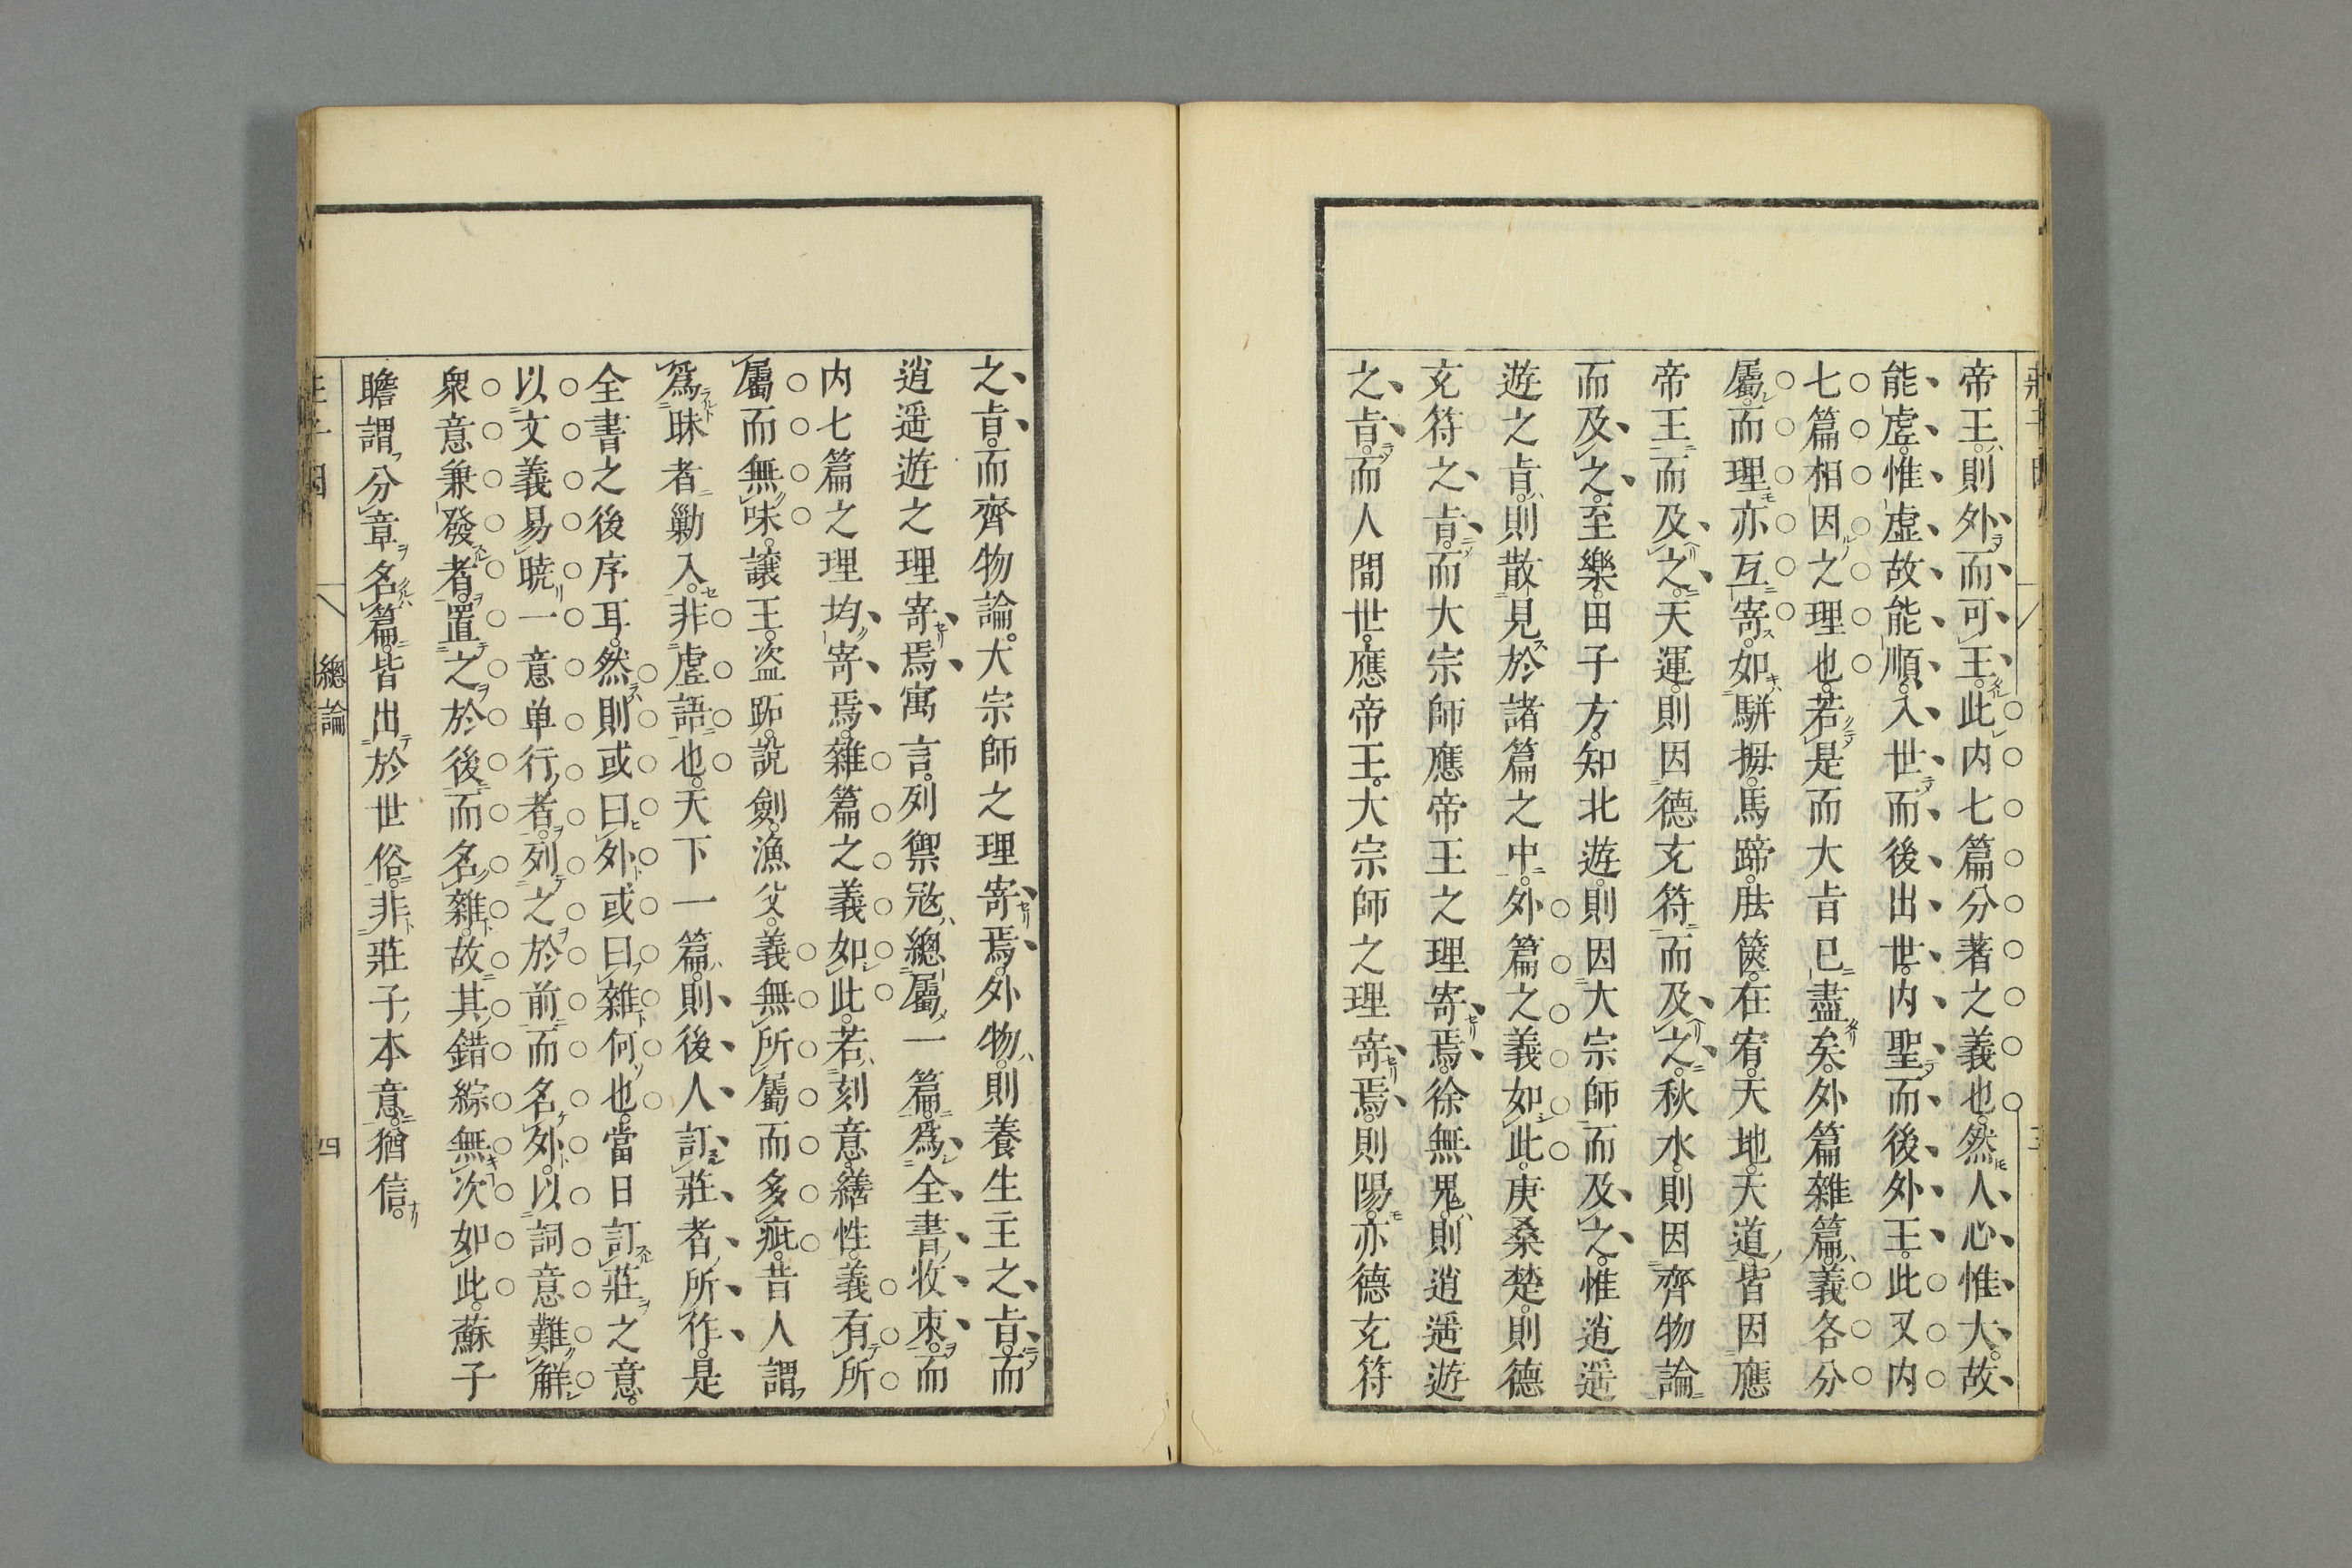 帝王。則外而可王。此内七篇分著之義也。然人心惟大。故
能虛。惟虛故能順。入世而後出世。内聖而後外王。此又内
七篇相因之理也。若是而大㫖已盡矣。外篇雜篇。義各分
屬。而理亦互寄。如駢拇。馬蹄。胠篋。在宥。天地。天道。皆因應
帝王而及之。天運。則因德充符而及之。秋水。則因齊物論
而及之。至樂。田子方。知北遊。則因大宗師而及之。惟逍遥
遊之㫖。則散見於諸篇之中。外篇之義如此。庚桑楚。則德
充符之㫖。而大宗師應帝王之理寄焉。徐無鬼。則逍遥遊
之㫖。而人間世。應帝王。大宗師之理寄焉。則陽。亦德充符
之㫖。而齊物論。大宗師之理寄焉。外物。則養生主之㫖。而
逍遥遊之理寄焉。寓言。列禦寇。總屬一篇。為全書收束。而
内七篇之理均寄焉。雜篇之義如此。若刻意。繕性。義有所
屬而無味。讓王。盗跖。說劍。漁父。義無所屬而多疵。昔人謂
為昧者勦入。非虛語也。天下一篇。則後人訂莊者所作。是
全書之後序耳。然則或曰外或曰雜何也。當日訂莊之意。
以文義易暁一意单行者。列之於前而名外。以詞意難解
衆意兼發者。置之於後而名雜。故其錯綜無次如此。蘇子
瞻謂分章名篇。皆出於世俗。非莊子本意。猶信。
總論
四